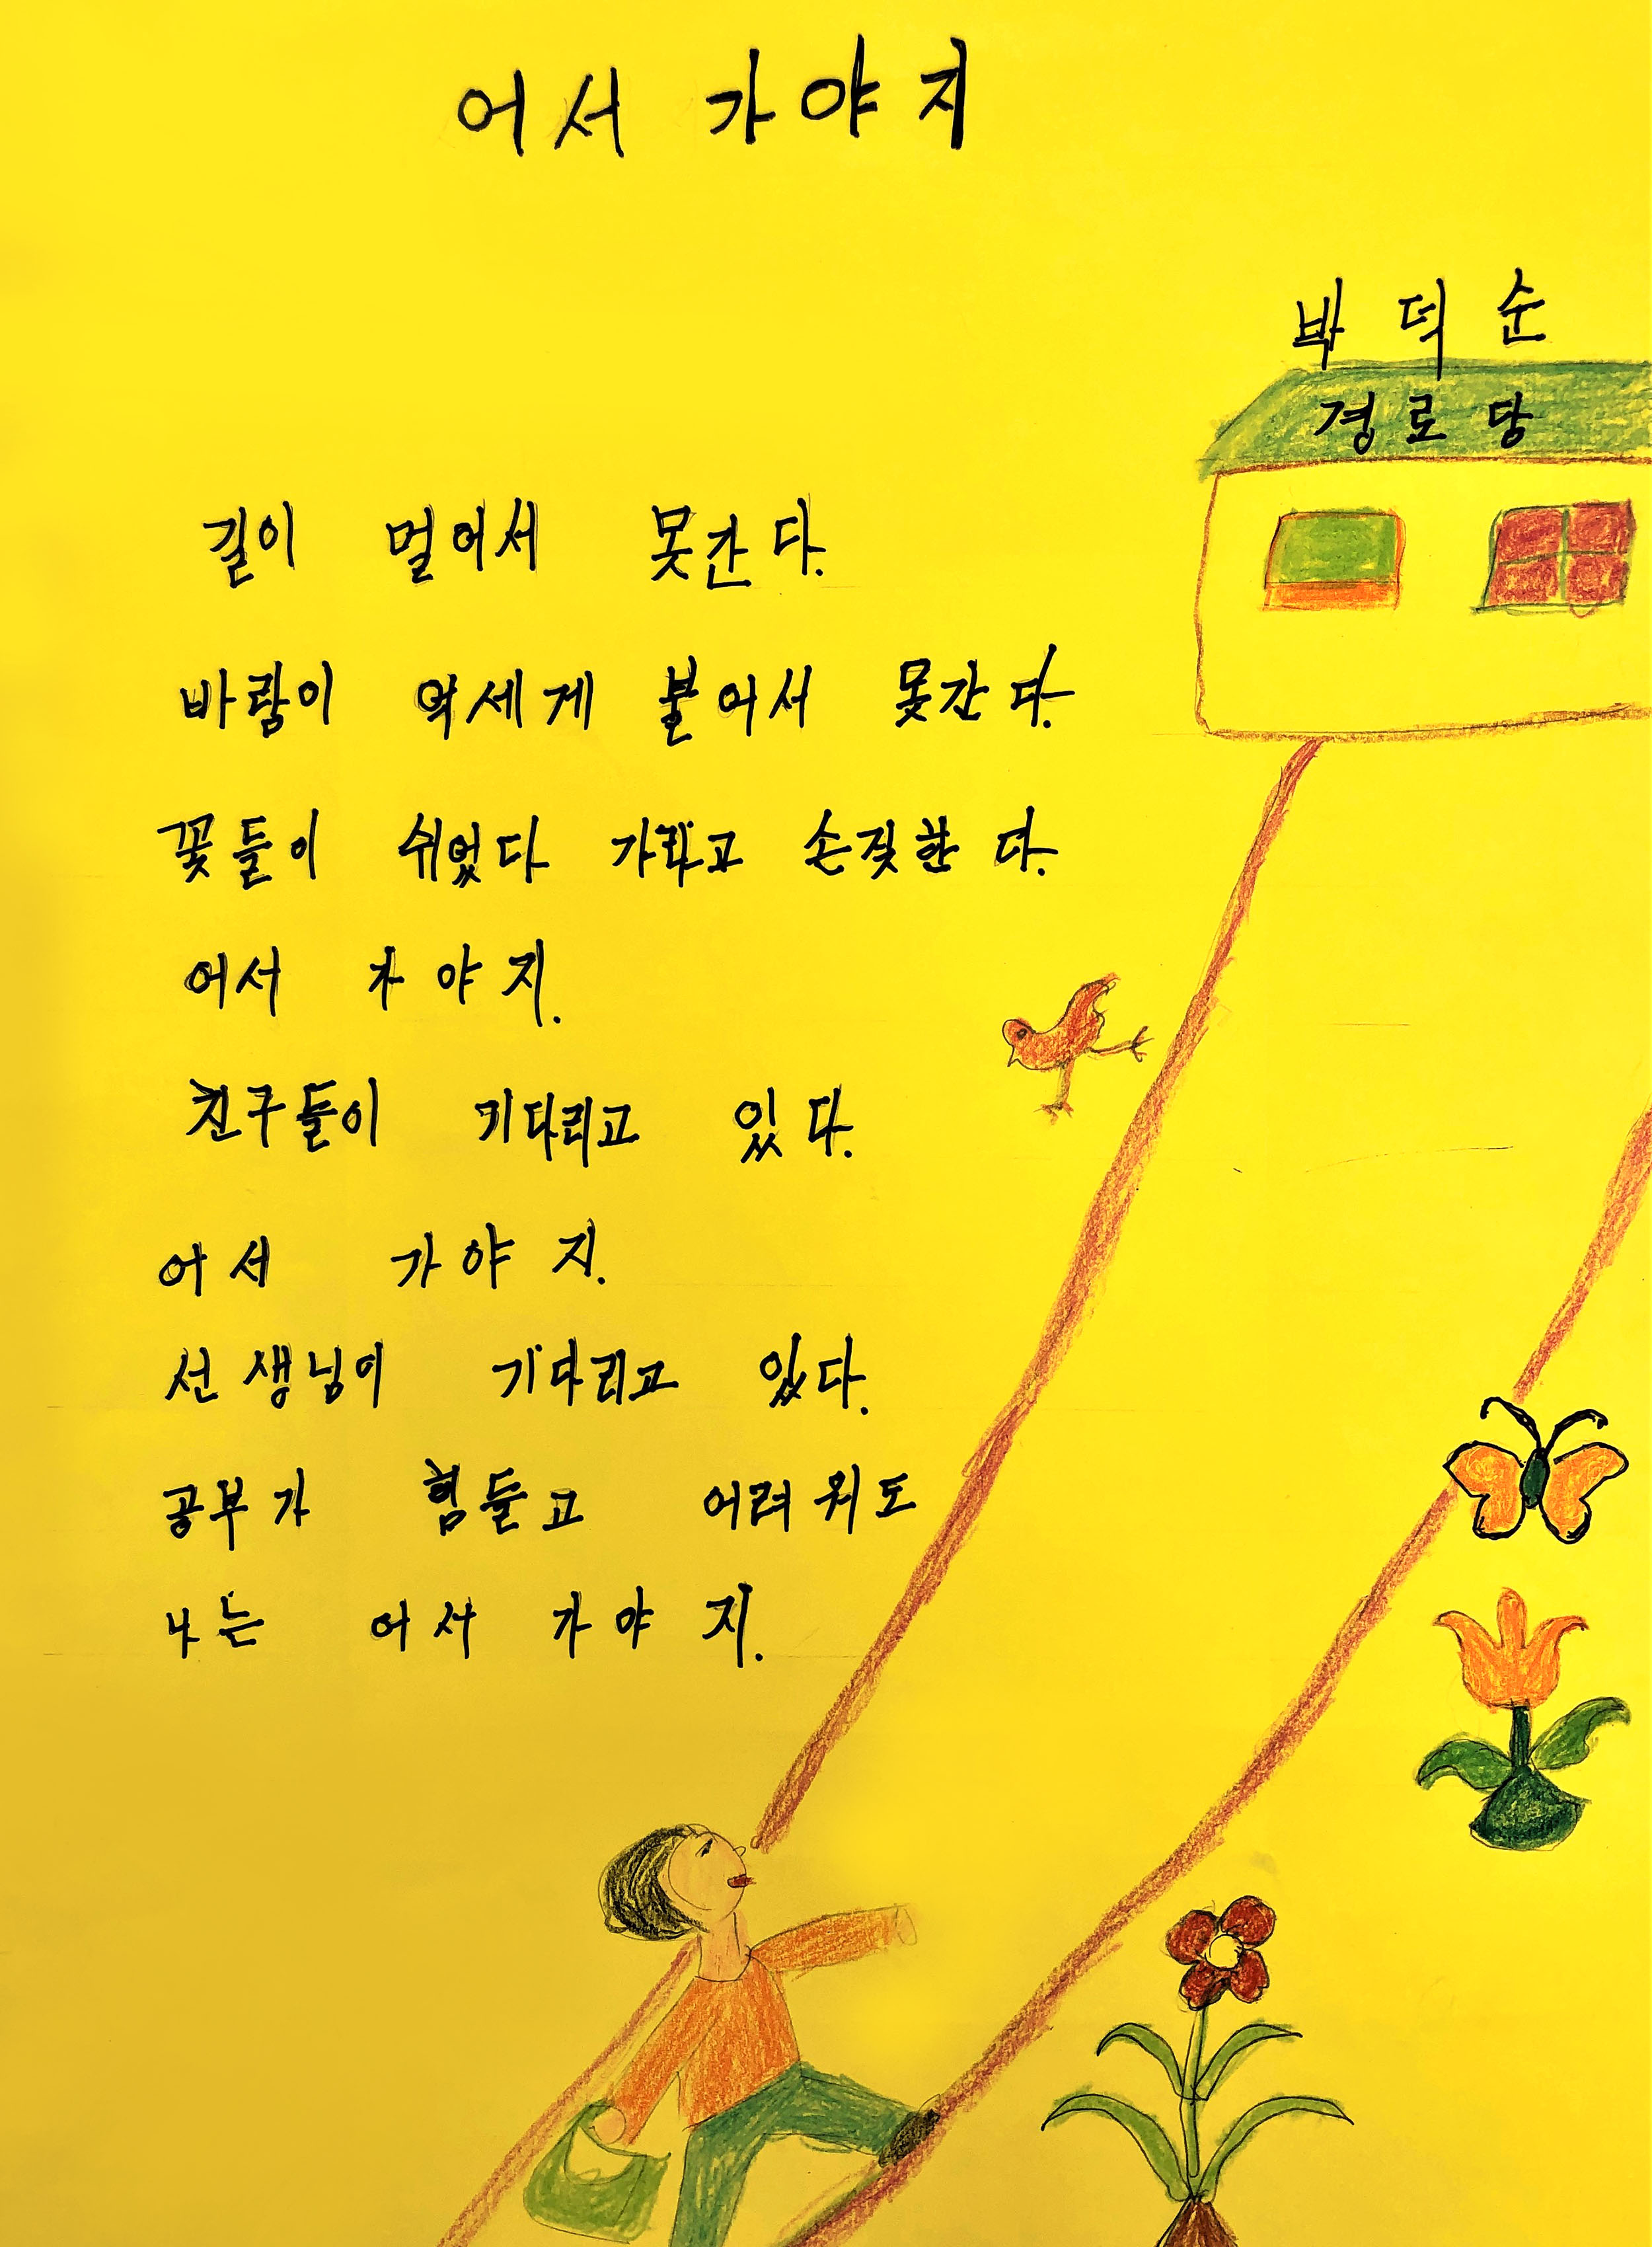 어서 가야지
박덕순
경로당
길이 멀어서 못간다.
바람이 억세게 불어서 못간다.
꽃들이 쉬었다 가라고 손짓한다.
어서 가야지.
친구들이 기다리고 있다.
어서 가야지.
선생님이 기다리고 있다.
공부가 힘들고 어려워도
나는 어서 가야지.